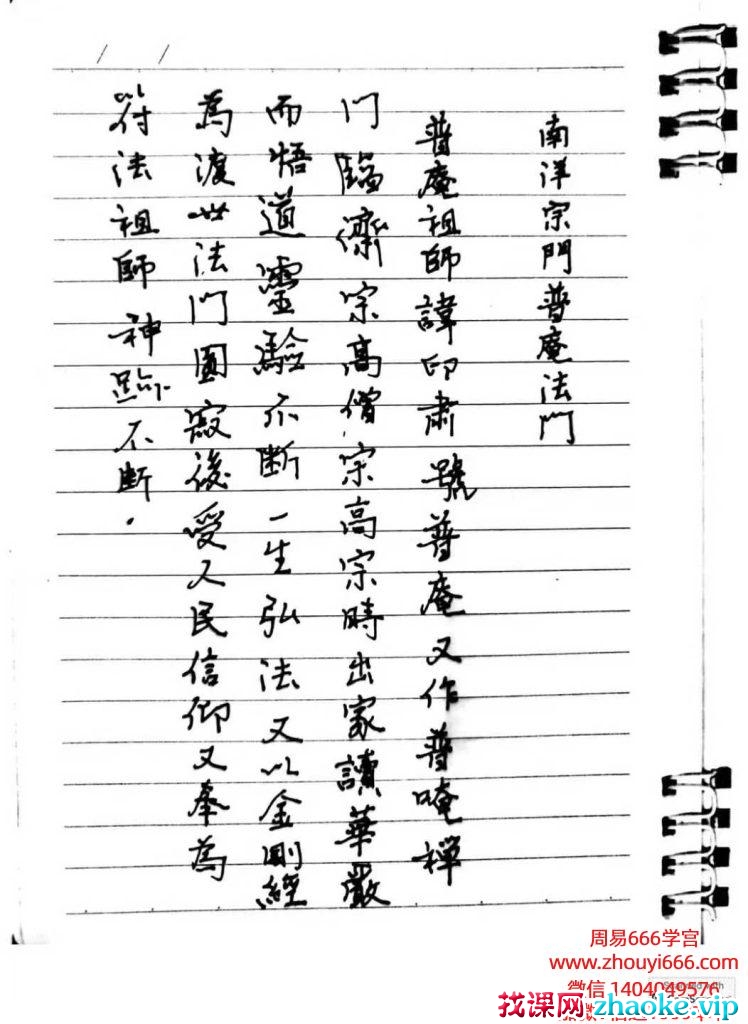 南洋宗門普庵法門
普庵祖師諱印肅號普庵又作普唵禪
門臨濟宗高僧宗高宗時出家讀華嚴
而悟道靈驗不斷一生弘法又以金剛經
為渡世法門圓寂後受人民信仰又奉為
符法祖師神跡不斷.
周易666学宫
www.zhouyi666.com
微信 1404049576
找课网zhaoke.vip